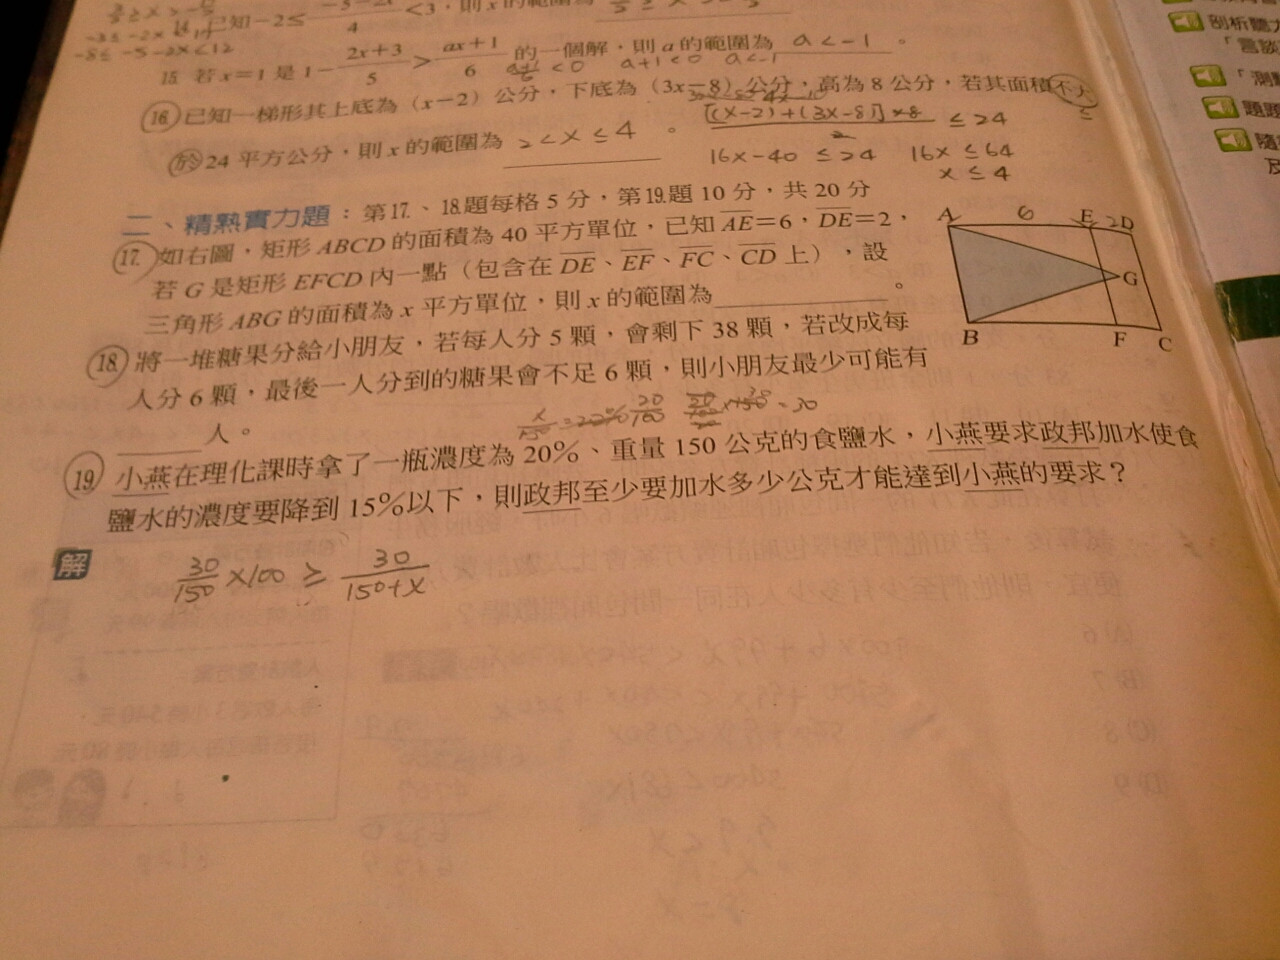 已知−2≤ −5−2x/4 <3，則x的範圍為
-8≤ -5-2x<12
15. 若x=1是1− 2x+3/5 > ax+1/6 的一個解，則a的範圍為 a<-1 。
a+1/6 <0 a+1<0 a<-1
16. 已知一梯形其上底為（x−2）公分，下底為（3x−8）公分，高為8公分，若其面積不大
於24平方公分，則x的範圍為 2<x≤4 。
[(x-2)+(3x-8)]×8/2 ≤24
16x-40 ≤24 16x ≤64
x ≤4
二、精熟實力題：第17.、18.題每格5分，第19.題10分，共20分
17. 如右圖，矩形ABCD的面積為40平方單位，已知AE=6，DE=2，
若G是矩形EFCD內一點（包含在DE、EF、FC、CD上），設
三角形ABG的面積為x平方單位，則x的範圍為 。
A 6 E 2 D
G
B F C
18. 將一堆糖果分給小朋友，若每人分5顆，會剩下38顆，若改成每
人分6顆，最後一人分到的糖果會不足6顆，則小朋友最少可能有
人。
x/150 = 20/100 =30
19. 小燕在理化課時拿了一瓶濃度為20%、重量150公克的食鹽水，小燕要求政邦加水使食
鹽水的濃度要降到15%以下，則政邦至少要加水多少公克才能達到小燕的要求？
解
30/150 ×100 ≥ 30/150+x
剖析聽力
「言談
「測
題題
隨
及